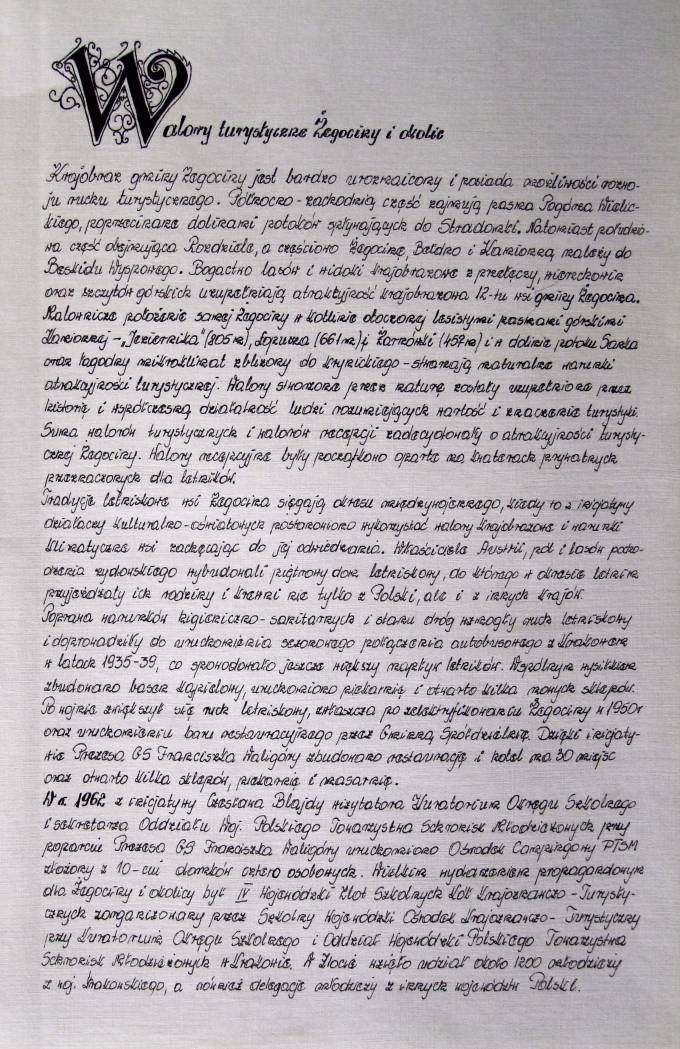 Walory turystyczne Żegociny i okolic
Krajobraz gminy Żegociny jest bardzo urozmaicony i posiada możliwości rozwo-
ju ruchu turystycznego. Północno-zachodnią część zajmują pasma Pogórza Wielic-
kiego, poprzecinane dolinami potoków spływających do Stradomki. Natomiast południo-
wa część obejmująca Rozdziele, a częściowo Żegocinę, Bełdno i Kamionną należy do
Beskidu Wyspowego. Bogactwo lasów i widoki krajobrazowe z przełęczy, wierzchowin
oraz szczytów górskich uzupełniają atrakcyjność krajobrazową 12-tu wsi gminy Żegocina.
Malownicze położenie samej Żegociny w kotlinie otoczonej lesistymi pasmami górskimi
Kamionnej - „Jeziernika" (805 m), Łopusza (661 m) i Żarnówki (459 m) i w dolinie potoku Sanka
oraz łagodny mikroklimat zbliżony do krynickiego - stwarzają naturalne warunki
atrakcyjności turystycznej. Walory stworzone przez naturę zostały uzupełnione przez
historię i współczesną działalność ludzi rozumiejących wartość i znaczenie turystyki.
Suma walorów turystycznych i walorów recepcji zadecydowały o atrakcyjności turysty-
cznej Żegociny. Walory recepcyjne były początkowo oparte na kwaterach prywatnych
przeznaczonych dla letników.
Tradycje letniskowe wsi Żegocina sięgają okresu międzywojennego, kiedy to z inicjatywy
działaczy kulturalno-oświatowych postanowiono wykorzystać walory krajobrazowe i warunki
klimatyczne wsi zachęcając do jej odwiedzania. Właściciele Austrii, pól i lasów pocho-
dzenia żydowskiego wybudowali piętrowy dom letniskowy, do którego w okresie letnim
przyjeżdżały ich rodziny i krewni nie tylko z Polski, ale i z innych krajów.
Poprawa warunków higieniczno-sanitarnych i stanu dróg wzmogły ruch letniskowy
i doprowadziły do uruchomienia sezonowego połączenia autobusowego z Krakowem
w latach 1935-39, co spowodowało jeszcze większy napływ letników. Wspólnym wysiłkiem
zbudowano basen kąpielowy, uruchomiono piekarnię i otwarto kilka nowych sklepów.
Po wojnie zwiększył się ruch letniskowy, zwłaszcza po zelektryfikowaniu Żegociny w 1960r
oraz uruchomieniu baru restauracyjnego przez Gminną Spółdzielnię. Dzięki inicjaty-
wie Prezesa GS Franciszka Waligóry zbudowano restaurację i hotel na 30 miejsc
oraz otwarto kilka sklepów, piekarnię i masarnię.
W r. 1962 z inicjatywy Czesława Blajdy wizytatora Kuratorium Okręgu Szkolnego
i sekretarza Oddziału Woj. Polskiego Towarzystwa Schronisk Młodzieżowych przy
poparciu Prezesa GS Franciszka Waligóry uruchomiono Ośrodek Campingowy PTSM
złożony z 10-ciu domków cztero osobowych. Wielkim wydarzeniem propagandowym
dla Żegociny i okolicy był IV Wojewódzki Zlot Szkolnych Kół Krajoznawczo-Turysty-
cznych zorganizowany przez Szkolny Wojewódzki Ośrodek Krajoznawczo-Turystyczny
przy Kuratorium Okręgu Szkolnego i Oddział Wojewódzki Polskiego Towarzystwa
Schronisk Młodzieżowych w Krakowie. W Zlocie wzięło udział około 1200 młodzieży
z woj. krakowskiego, a również delegacje młodzieży z innych województw Polski.